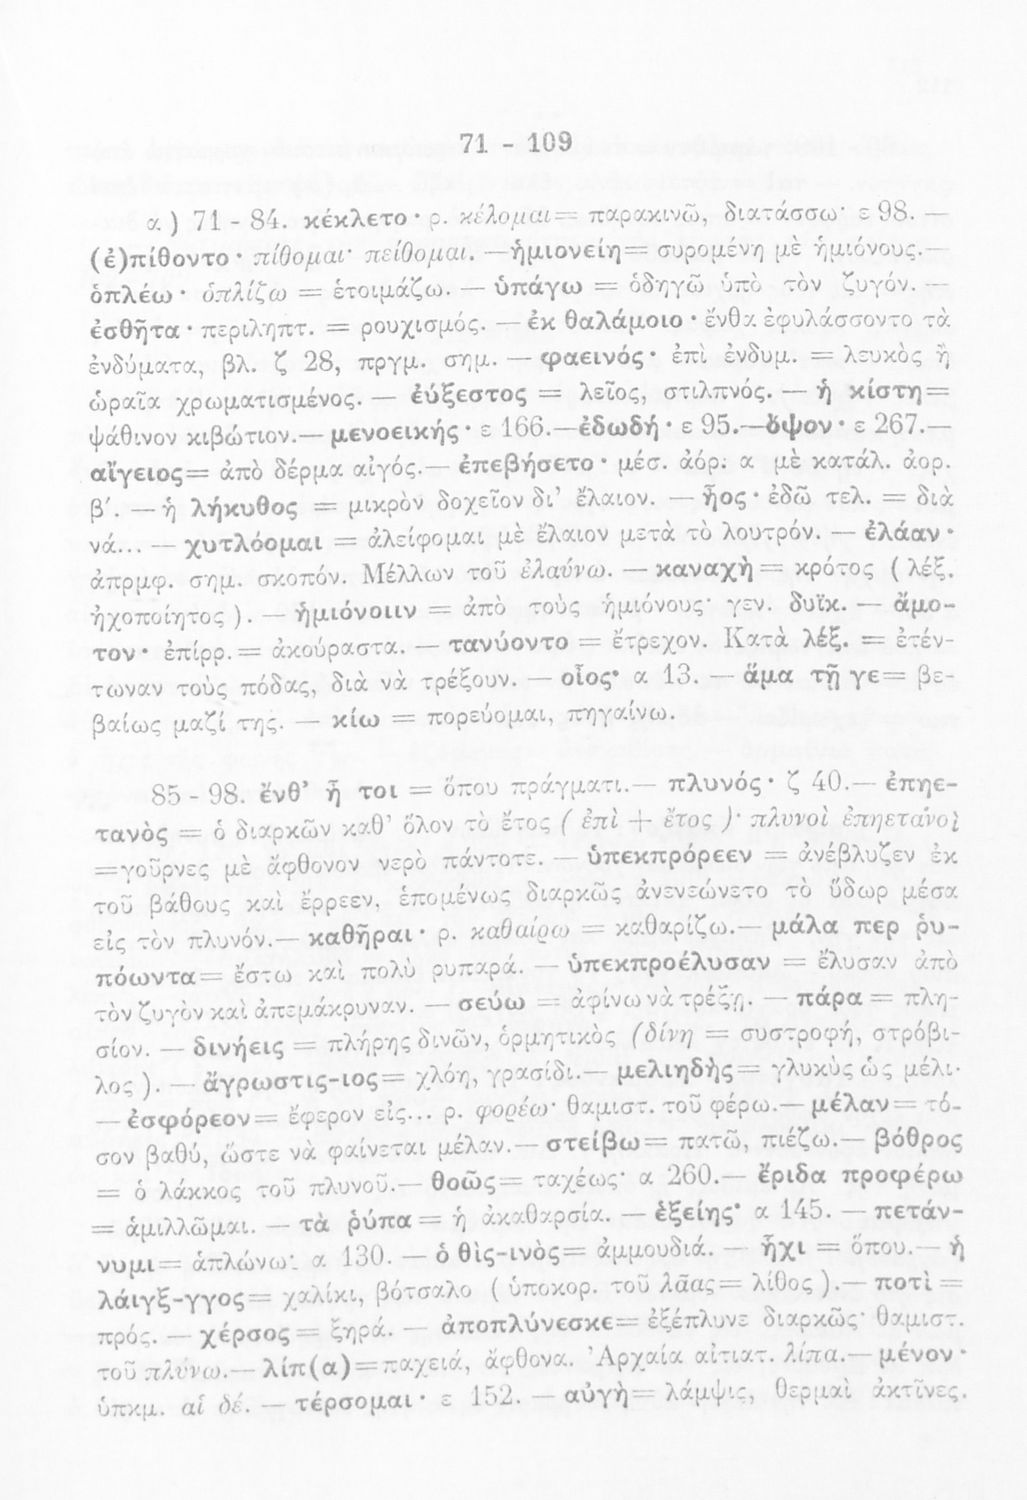 71 - 109
α ) 71 - 84. κέκλετο · ρ. κέλομαι = παρακινῶ, διατάσσω· ε 98. —
(ἐ)πίθοντο · πίθομαι· πείθομαι. —ἡμιονείη= συρομένη μὲ ἡμιόνους.—
ὁπλέω · ὁπλίζω = ἑτοιμάζω. — ὑπάγω = ὁδηγῶ ὑπὸ τὸν ζυγόν. —
ἐσθῆτα · περιληπτ. = ρουχισμός. — ἐκ θαλάμοιο · ἔνθα ἐφυλάσσοντο τὰ
ἐνδύματα, βλ. ζ 28, πργμ. σημ. — φαεινός · ἐπὶ ἐνδυμ. = λευκὸς ἢ
ὡραῖα χρωματισμένος. — ἐύξεστος = λεῖος, στιλπνός. — ἡ κίστη=
ψάθινον κιβώτιον.— μενοεικής · ε 166.—ἐδωδή · ε 95.—ὄψον · ε 267.—
αἴγειος= ἀπὸ δέρμα αἰγός.— ἐπεβήσετο · μέσ. ἀόρ. α μὲ κατάλ. ἀορ.
β΄. — ἡ λήκυθος = μικρὸν δοχεῖον δι’ ἔλαιον. — ᾗος · ἐδῶ τελ. = διὰ
νά... — χυτλόομαι = ἀλείφομαι μὲ ἔλαιον μετὰ τὸ λουτρόν. — ἐλάαν ·
ἀπρμφ. σημ. σκοπόν. Μέλλων τοῦ ἐλαύνω. — καναχὴ = κρότος ( λέξ.
ἠχοποίητος ). — ἡμιόνοιιν = ἀπὸ τοὺς ἡμιόνους· γεν. δυϊκ. — ἄμο-
τον · ἐπίρρ. = ἀκούραστα. — τανύοντο = ἔτρεχον. Κατὰ λέξ. = ἐτέν-
τωναν τοὺς πόδας, διὰ νὰ τρέξουν. — οἶος· α 13. — ἅμα τῇ γε= βε-
βαίως μαζί της. — κίω = πορεύομαι, πηγαίνω.
85 - 98. ἔνθ’ ἦ τοι = ὅπου πράγματι.— πλυνός · ζ 40.— ἐπηε-
τανὸς = ὁ διαρκῶν καθ’ ὅλον τὸ ἔτος ( ἐπὶ + ἔτος )· πλυνοὶ ἐπηετανοὶ
=γοῦρνες μὲ ἄφθονον νερὸ πάντοτε. — ὑπεκπρόρεεν = ἀνέβλυζεν ἐκ
τοῦ βάθους καὶ ἔρρεεν, ἑπομένως διαρκῶς ἀνενεώνετο τὸ ὕδωρ μέσα
εἰς τὸν πλυνόν.— καθῆραι · ρ. καθαίρω = καθαρίζω.— μάλα περ ῥυ-
πόωντα= ἔστω καὶ πολὺ ρυπαρά. — ὑπεκπροέλυσαν = ἔλυσαν ἀπὸ
τὸν ζυγὸν καὶ ἀπεμάκρυναν. — σεύω = ἀφίνω νὰ τρέξῃ. — πάρα = πλη-
σίον. — δινήεις = πλήρης δινῶν, ὁρμητικὸς (δίνη = συστροφή, στρόβι-
λος ). — ἄγρωστις-ιος= χλόη, γρασίδι.— μελιηδὴς= γλυκὺς ὡς μέλι·
— ἐσφόρεον= ἔφερον εἰς... ρ. φορέω· θαμιστ. τοῦ φέρω.— μέλαν= τό-
σον βαθύ, ὥστε νὰ φαίνεται μέλαν.— στείβω= πατῶ, πιέζω.— βόθρος
= ὁ λάκκος τοῦ πλυνοῦ.— θοῶς= ταχέως· α 260.— ἔριδα προφέρω
= ἁμιλλῶμαι. — τὰ ῥύπα = ἡ ἀκαθαρσία. — ἑξείης· α 145. — πετάν-
νυμι= ἁπλώνω· α 130. — ὁ θὶς-ινὸς= ἀμμουδιά. — ἧχι = ὅπου.— ἡ
λάιγξ-γγος= χαλίκι, βότσαλο ( ὑποκορ. τοῦ λᾶας= λίθος ).— ποτὶ =
πρός. — χέρσος= ξηρά. — ἀποπλύνεσκε= ἐξέπλυνε διαρκῶς· θαμιστ.
τοῦ πλύνω.— λίπ(α)=παχειά, ἄφθονα. Ἀρχαία αἰτιατ. λίπα.— μένον ·
ὑπκμ. αἱ δέ. — τέρσομαι · ε 152. — αὐγὴ= λάμψις, θερμαὶ ἀκτῖνες.